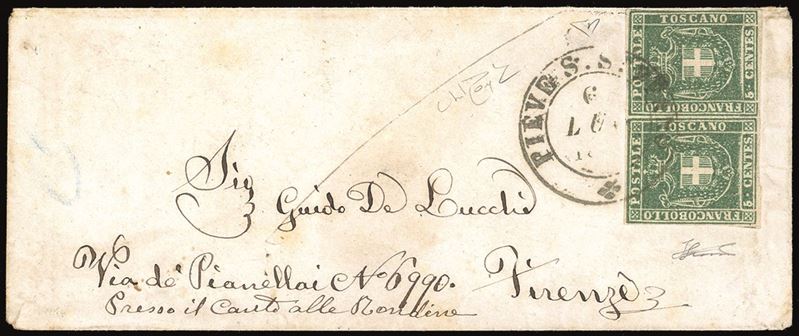 TOSCANO
POSTALE
5 - CENTES
FRANCOBOLLO
TOSCANO
POSTALE
5 - CENTES
FRANCOBOLLO
PIEVE S. S.
6
LUG
Sig
Guido De Lucchi
Via de' Pianellai No 6990. Firenze
Presso il Canto alle Rondine